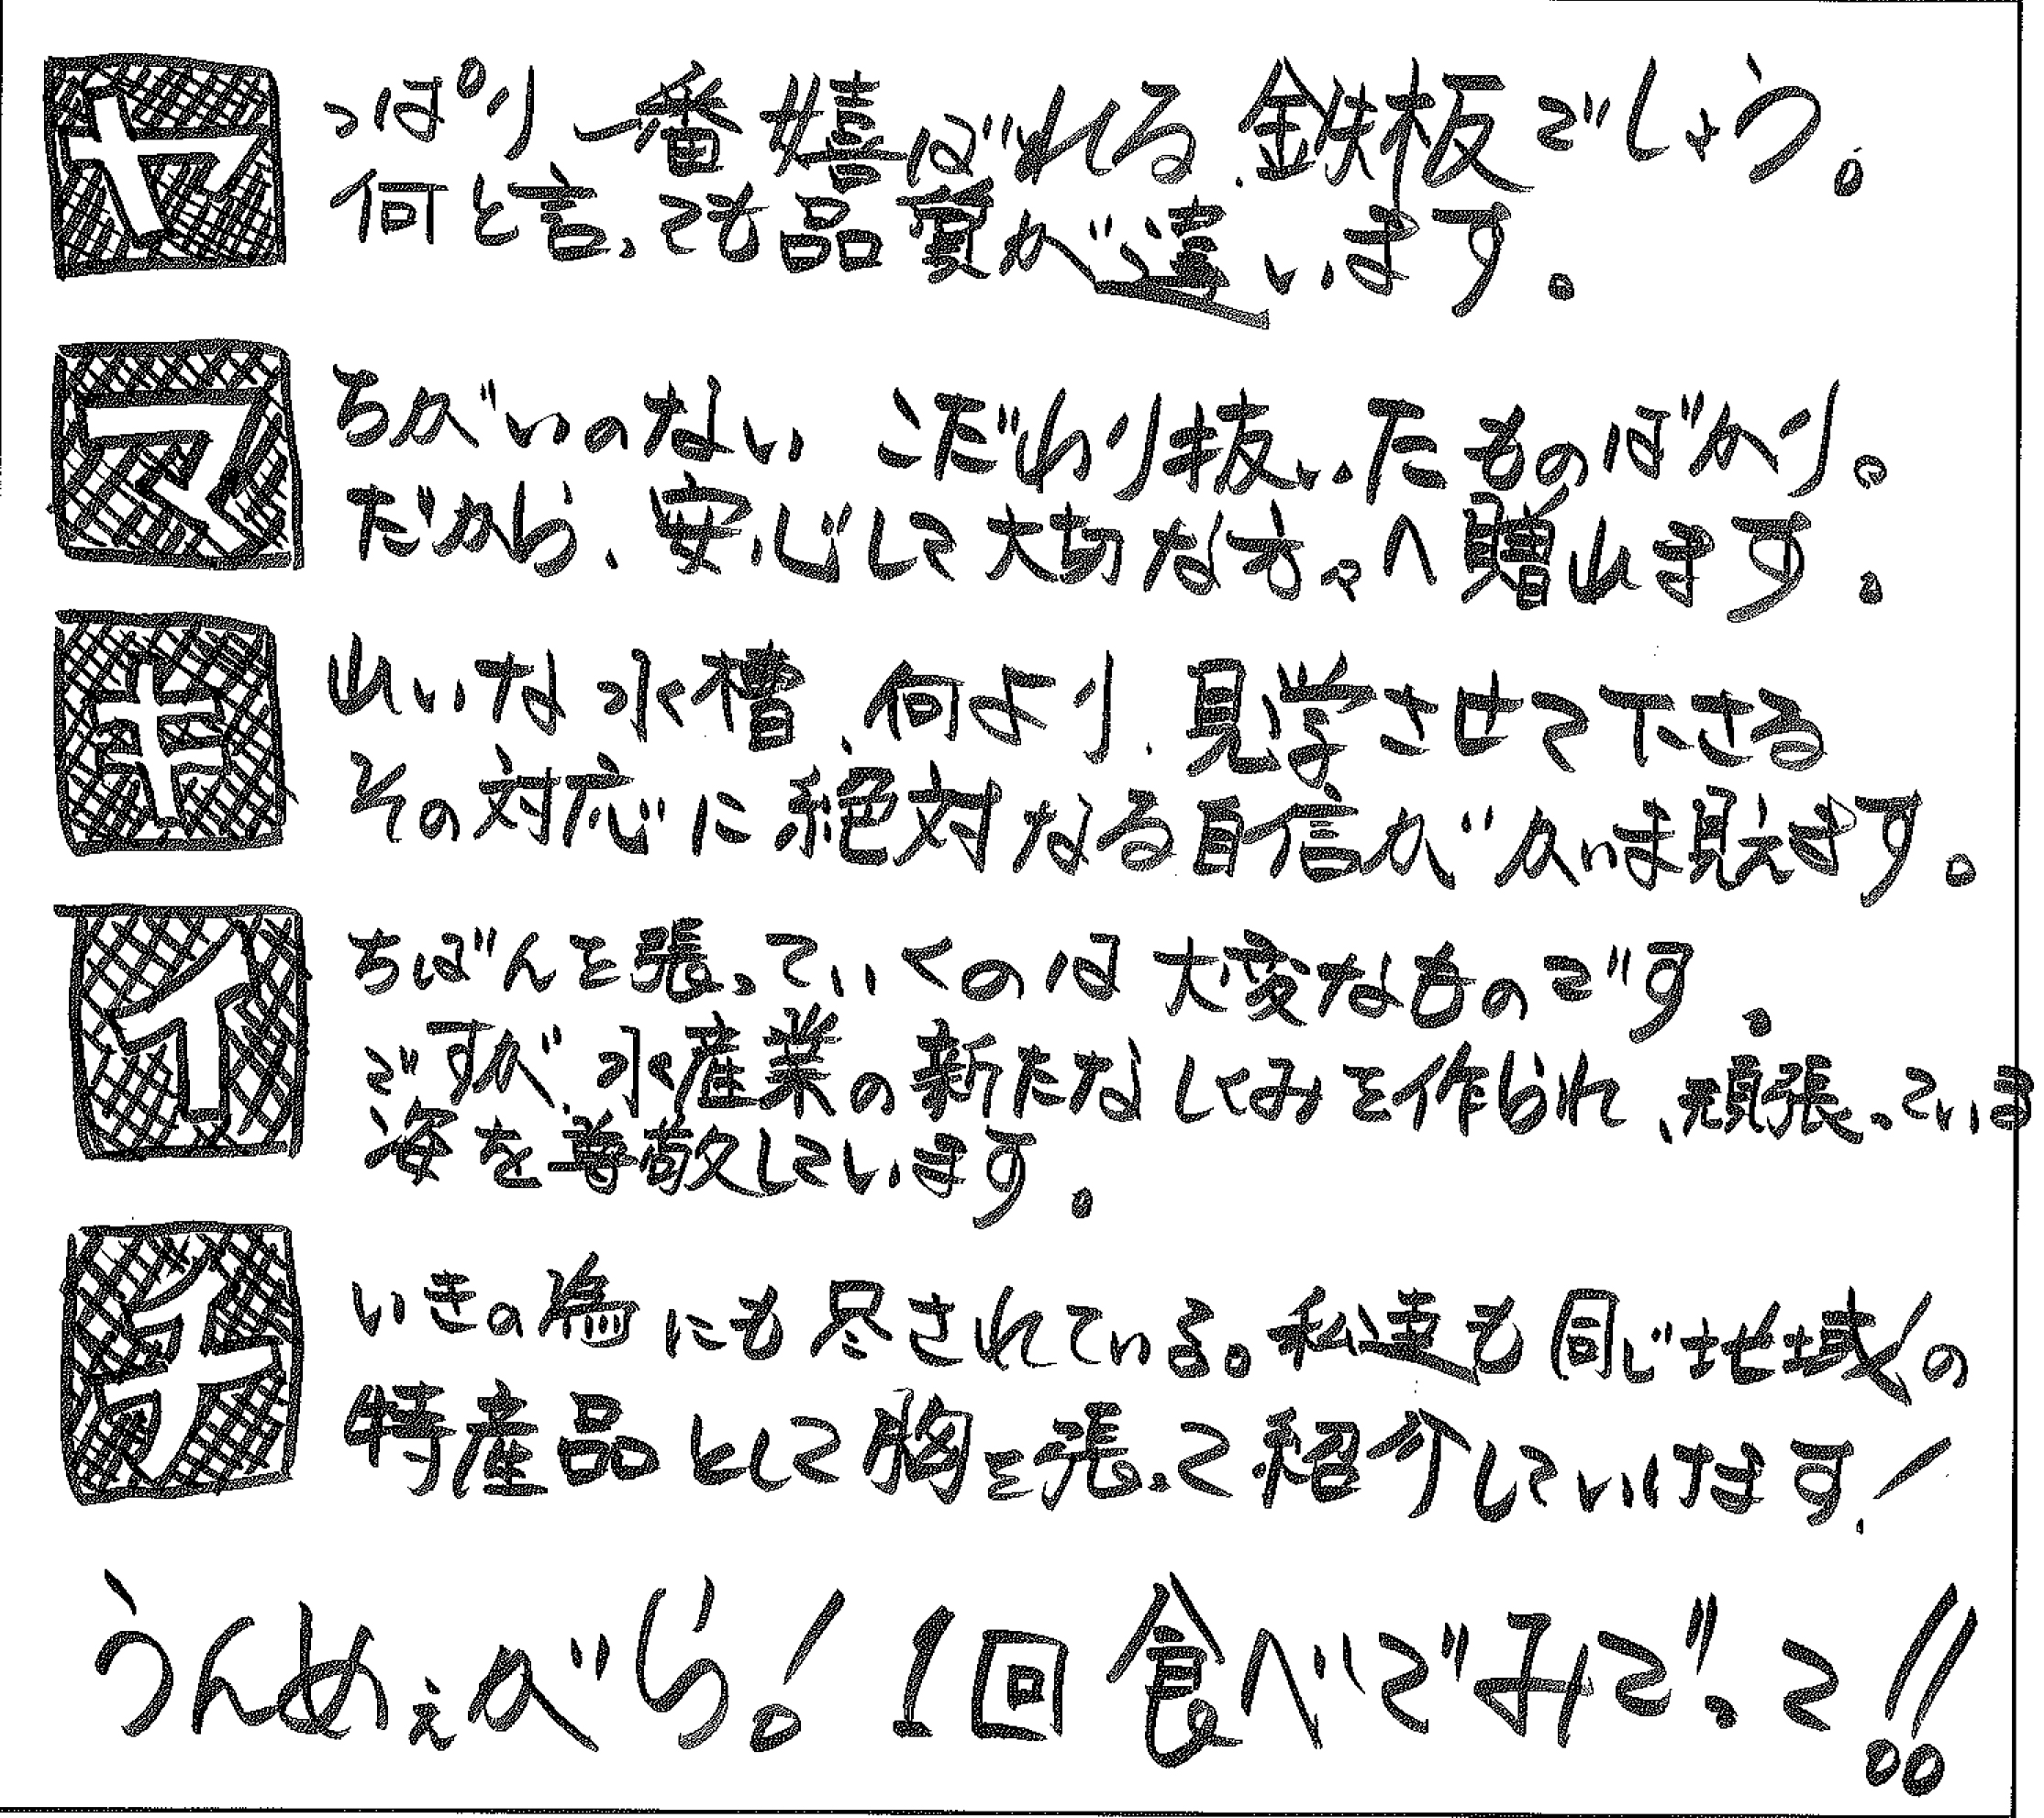 ヤっぱり一番嬉ばれる、鉄板でしょう。
何と言っても品質が違います。
マちがいのない こだわり抜いたものばかり。
だから、安心して大切な方々へ贈れます。
キれいな水槽、何より、見学させて下さる
その対応に絶対なる自信がかいま見えます。
イちばんを張っていくのは大変なものです。
ですが、水産業の新たなしくみを作られ、頑張ってい
姿を尊敬しています。
チいきの為にも尽されている。私達も同じ地域の
特産品として胸を張って紹介していけます!
うんめぇがら! 1回食べでみでって!!